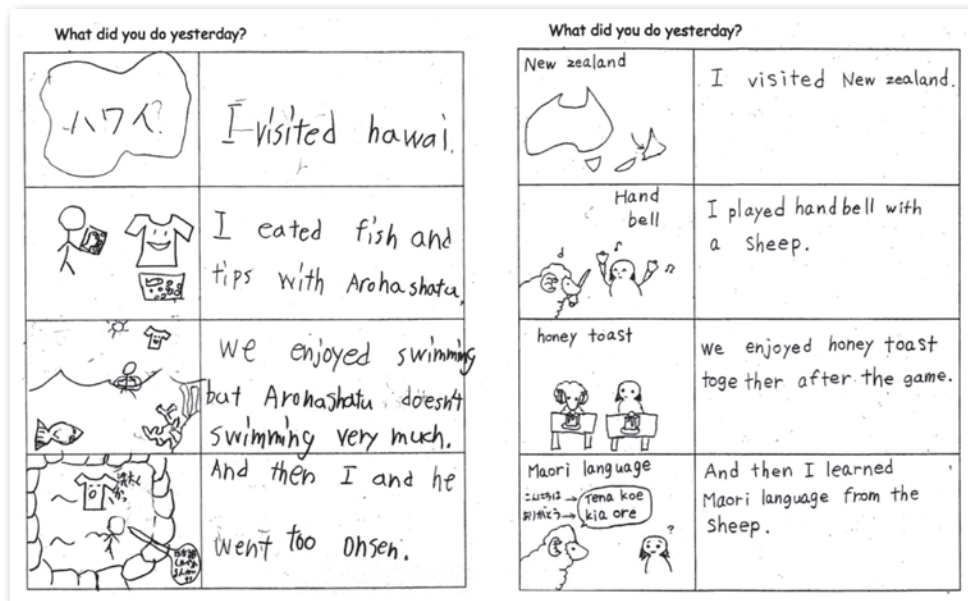 What did you do yesterday?
ハワイ
I visited hawai.
I eated fish and
tips with Arohashatu.
we enjoyed swimming
but Arohashatu doesn't
swimming very much.
And then I and he
went too Onsen.
What did you do yesterday?
New zealand
I visited New zealand.
Hand
bell
I played handbell with
a sheep.
honey toast
we enjoyed honey toast
together after the game.
Maori language
こんにちは → Tena koe
ありがとう → kia ore
?
And then I learned
Maori language from the
sheep.